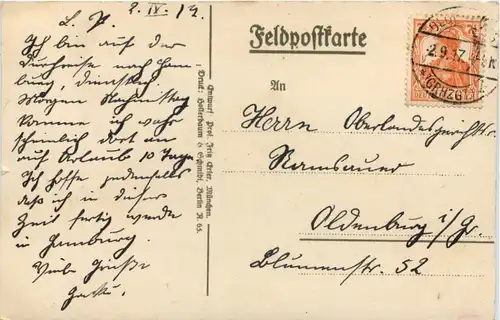 2. IV. 12.
L. P.
Ich bin auf der
Durchreise nach Ham-
burg, Dienstag
Morgen Nachmittag
komme ich wahr
scheinlich dort an
auf Urlaub 10 Tage.
Ich hoffe jedenfalls
daß ich in dieser
Zeit fertig werde
in Hamburg.
Viele Grüße
Entwurf: Prof. Fritz Erler, München.
Druck: Hollerbaum & Schmidt, Berlin N. 65.
Feldpostkarte
2.9.17
An
Herrn Oberlandesgerichts-
Ramsauer
Oldenburg i/Gr.
Blumenstr. 52